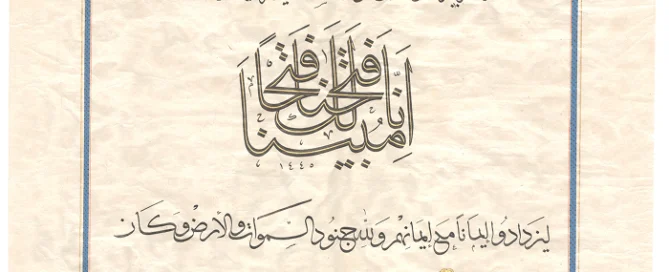 إِنَّا فَتَحْنَا لَكَ فَتْحًا مُبِينًا
١٤٤٥
ليزدادوا إيمانا مع إيمانهم ولله جنود السموات والأرض وكان